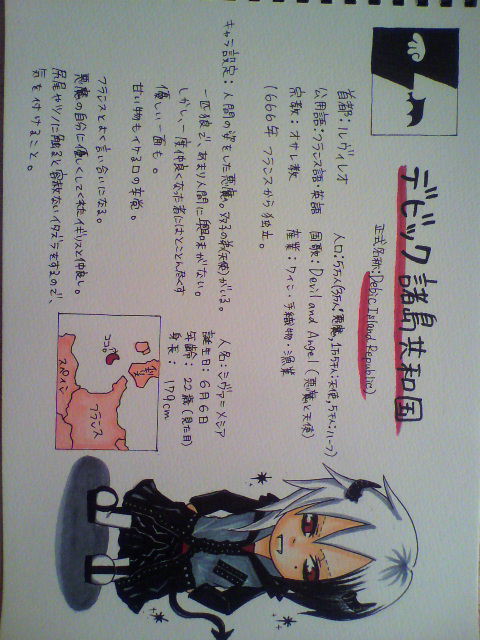 デビック諸島共和国
正式名称:Debic Island Republic)
首都:ルヴィレオ
人口:5万人(3万人:悪魔,1万5千人:天使,5千人:ハーフ)
公用語:フランス語・英語
国歌:Devil and Angel (悪魔と天使)
宗教:オサレ教
産業:ワイン・手織物・漁業
1666年 フランスから独立。
キャラ設定:人間の姿をした悪魔。双子の弟(天使)がいる。
一匹狼で、あまり人間に興味がない。
しかし、一度仲良くなった者にはとことん尽くす
優しい一面も。
甘い物もイケる口の辛党。
フランスとよく言い合いになる。
悪魔の自分に優しくしてくれたイギリスと仲良し。
尻尾やツノに触ると容赦ないイタズラをするので、
気を付けること。
人名:ミヴァニメシア
誕生日:6月6日
年齢:22歳(見た目)
身長:179cm
ココ。
スペイン
フランス